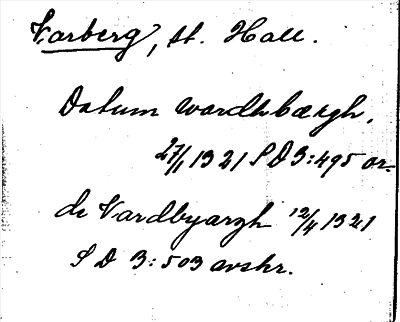 Varberg, st. Hall.
Datum Wardhbærgh,
27/1 1321 SD 3:495 or.
de Vardbyargh 12/4 1321
SD 3:503 avskr.